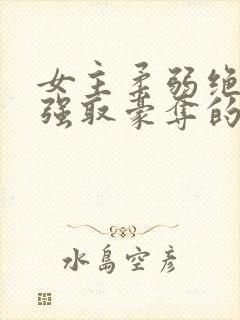 女主柔弱绝
强取豪夺的
水岛空彦